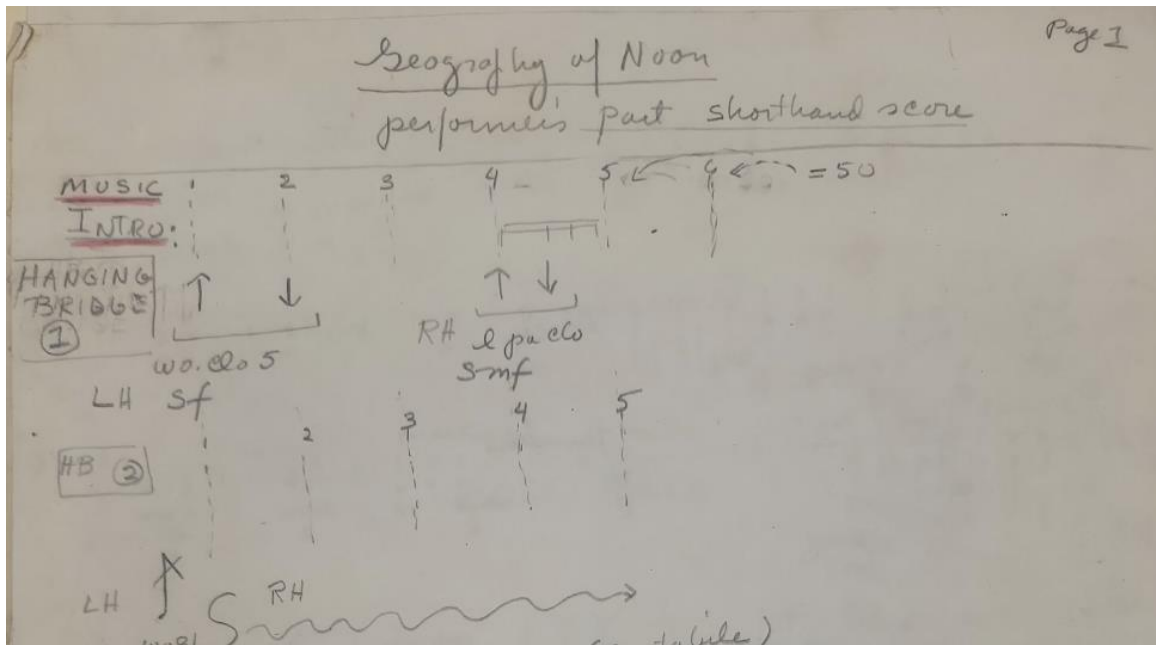 Page 1
Geography of Noon
performer's part shorthand score
MUSIC 1 2 3 4 5 6 = 50
INTRO:
HANGING
BRIDGE
①
RH l pa clo
wo. clo 5 smf
LH Sf
2 3 4 5
HB ②
LH RH